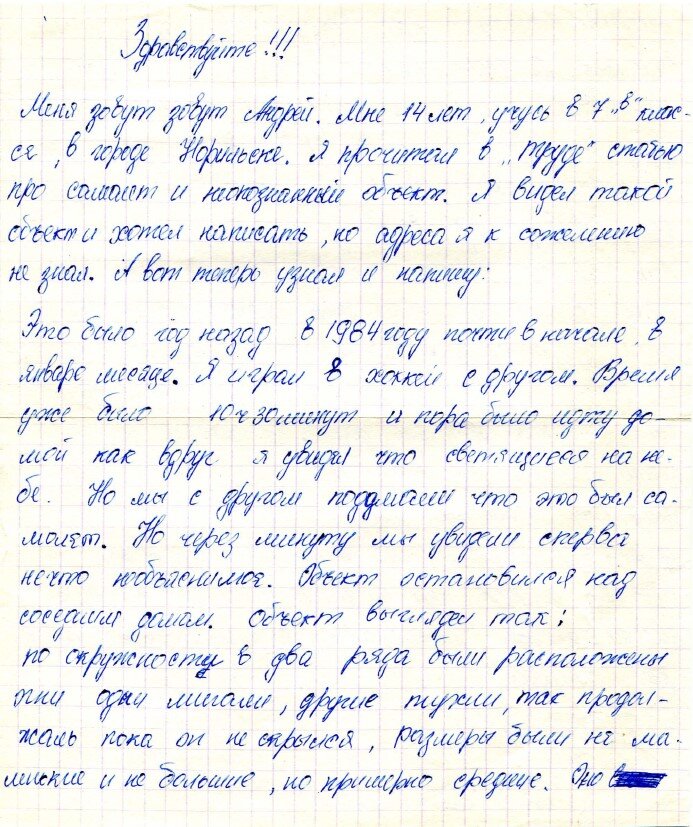 Здравствуйте!!!
Меня зовут зовут Андрей. Мне 14 лет, учусь в 7 „в" клас-
се, в городе Норильске. Я прочитал в „труде" статью
про самолёт и неопознанный объект. Я видел такой
объект и хотел написать, но адреса я к сожелению
не знал. А вот теперь узнал и напишу:
Это было год назад в 1984 году почти в начале, в
январе месяце. Я играл в хоккей с другом. Время
уже было 10 ч 30 минут и пора было идти до-
мой как вдруг я увидел что светящиеся на не-
бе. Но мы с другом подумали что это был са-
молёт. Но через минуту мы увидели сперва
нечто необъяснимое. Объект остановился над
соседним домом. Объект выглядел так:
по окружности в два ряда были расположены
огни одни мигали, другие тухли, так продол-
жалось пока он не скрылся, размеры были не ма-
ленькие и не большие, но примерно средние. Оно